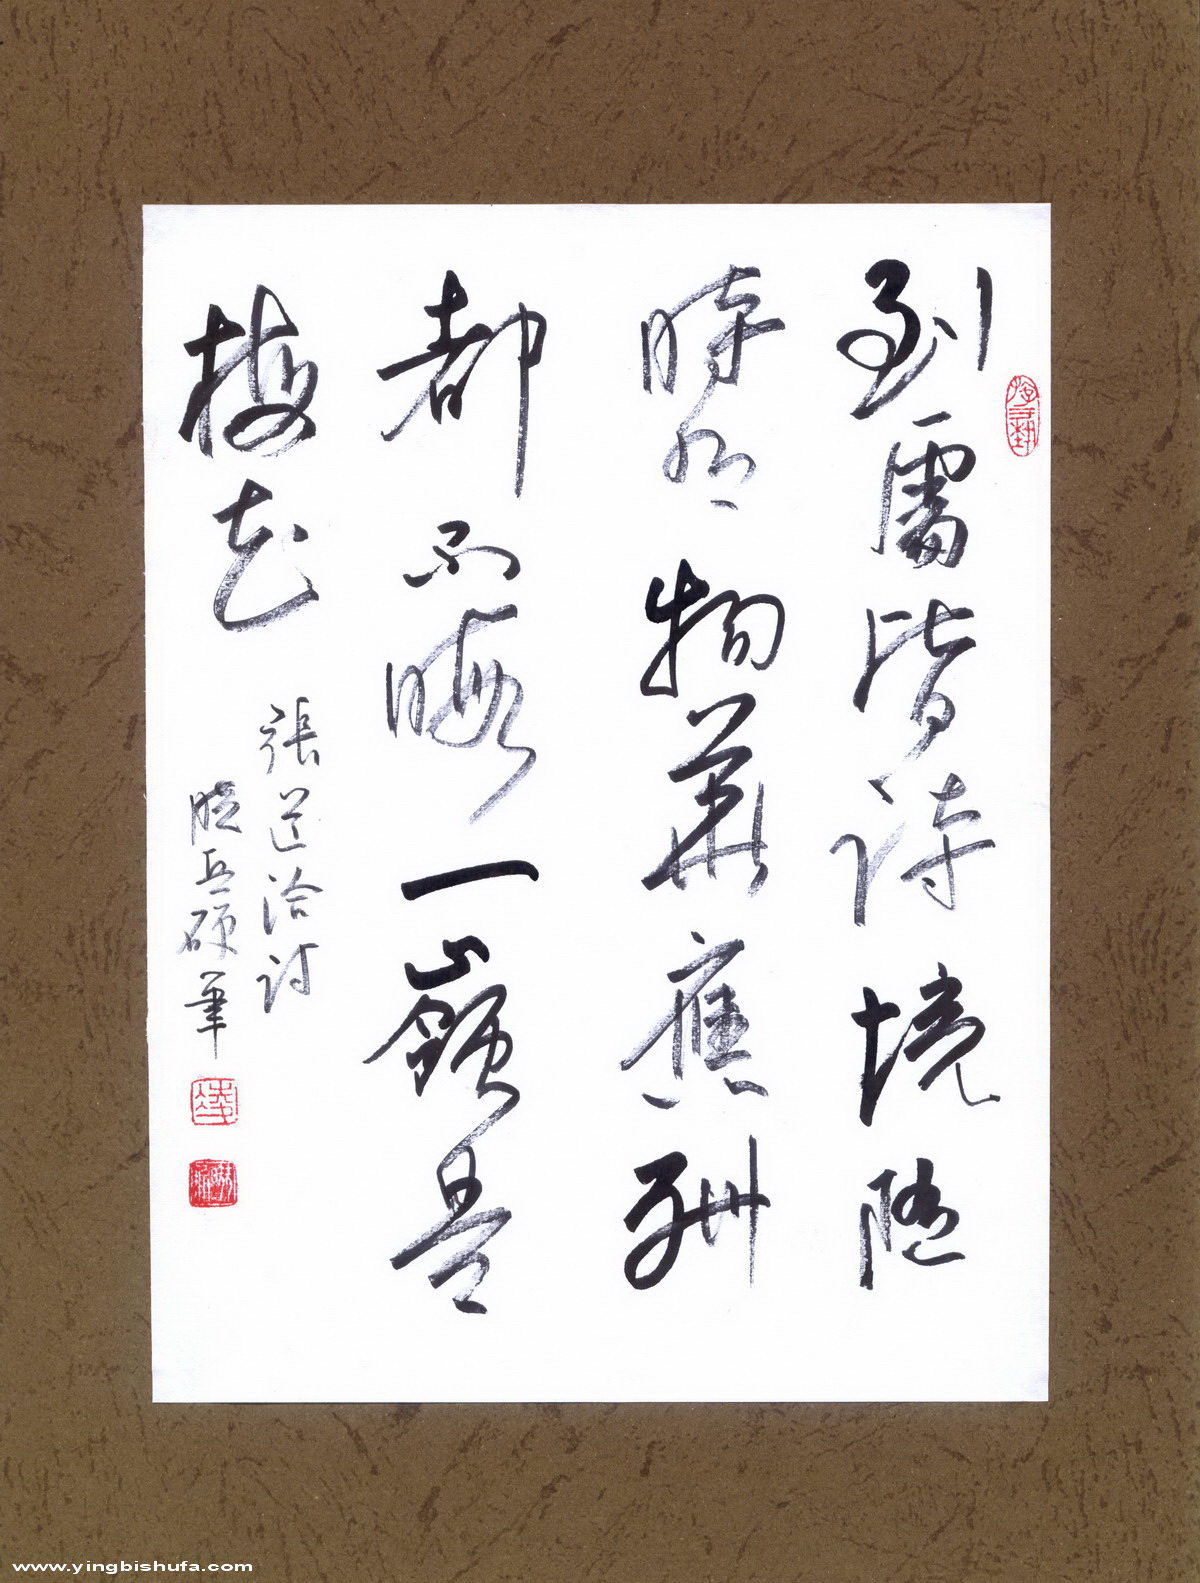 到處皆詩境隨
時有物華應酬
都不暇一嶺是
梅花
張道洽詩
曉兵硬筆
www.yingbishufa.com